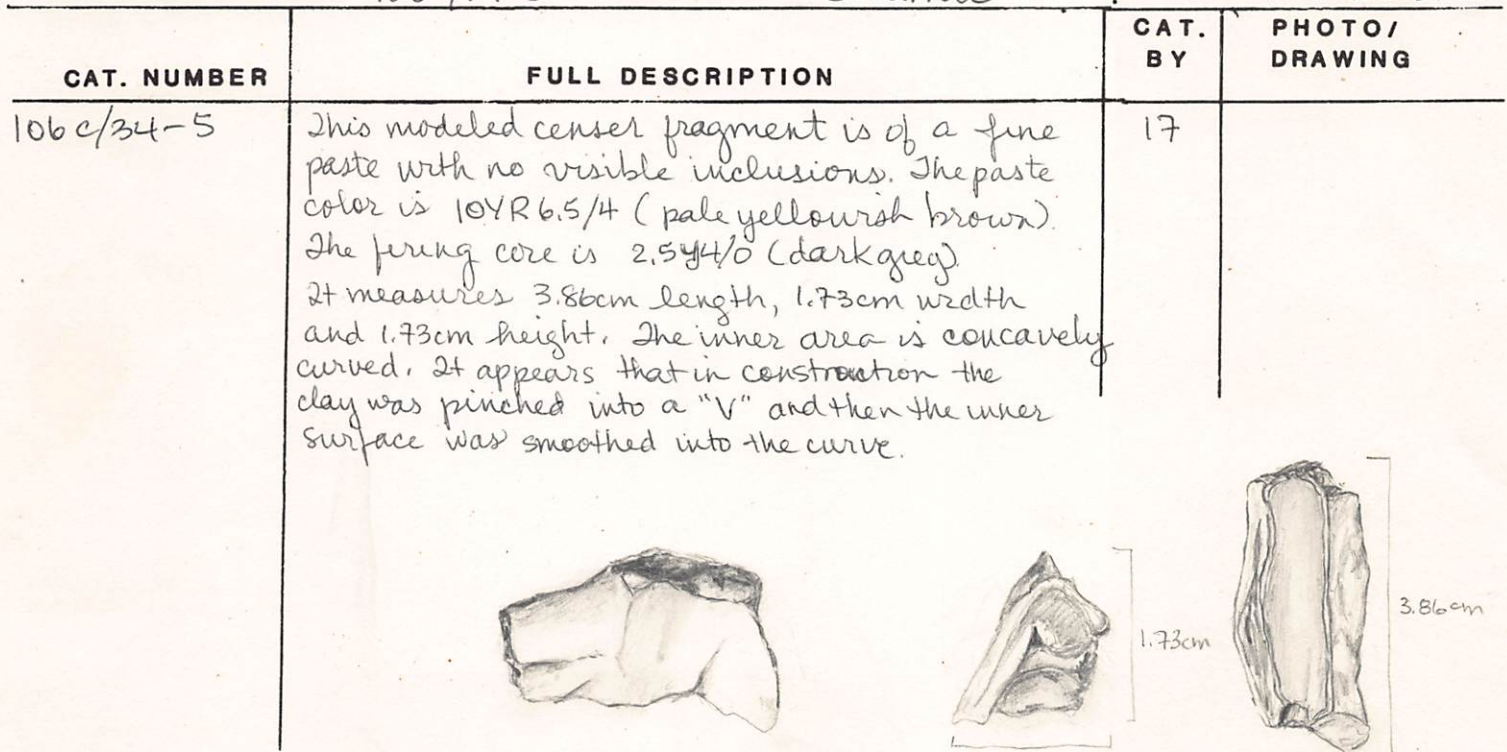 CAT. NUMBER
FULL DESCRIPTION
CAT.
BY
PHOTO/
DRAWING
106c/34-5
This modeled censer fragment is of a fine
paste with no visible inclusions. The paste
color is 10YR6.5/4 (pale yellowish brown).
The firing core is 2.5Y4/0 (dark grey).
It measures 3.86cm length, 1.73cm width
and 1.73cm height. The inner area is concavely
curved. It appears that in construction the
clay was pinched into a "V" and then the inner
surface was smoothed into the curve.
17
1.73cm
3.86cm